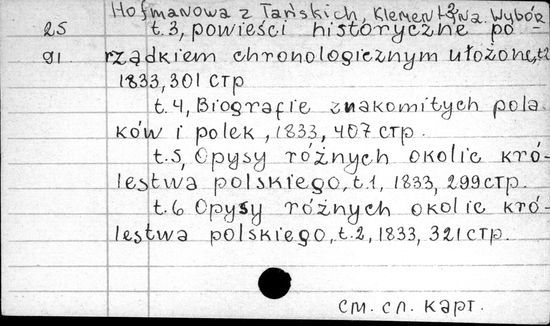 Hofmanowa z Tańskich, Klementyna. Wybór
25 t.3, powieści historyczne po-
91 rządkiem chronologicznym ułożone, t.2
1833, 301 стр
t.4, Biografie znakomitych pola
ków i polek, 1833, 407 стр.
t.5, Opysy różnych okolic kró-
lestwa polskiego, t.1, 1833, 299 стр.
t.6 Opysy różnych okolic kró-
lestwa polskiego, t.2, 1833, 321 стр.
см. сл. карт.